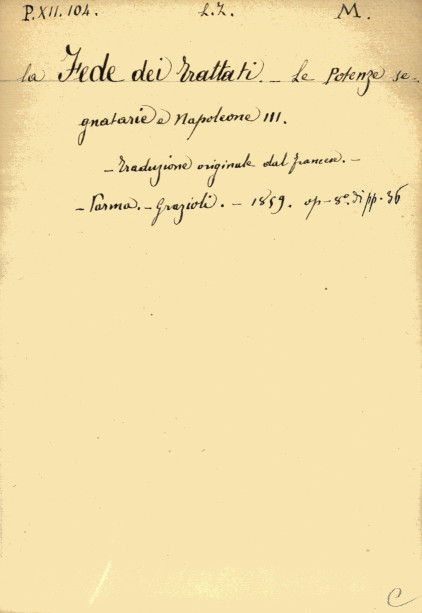 P.XII.104. L.I. M.
la Fede dei Trattati. — Le Potenze se-
gnatarie e Napoleone III.
— Traduzione originale dal francese. —
— Parma. — Grazioli. — 1859. op. 8°. di pp. 36
C